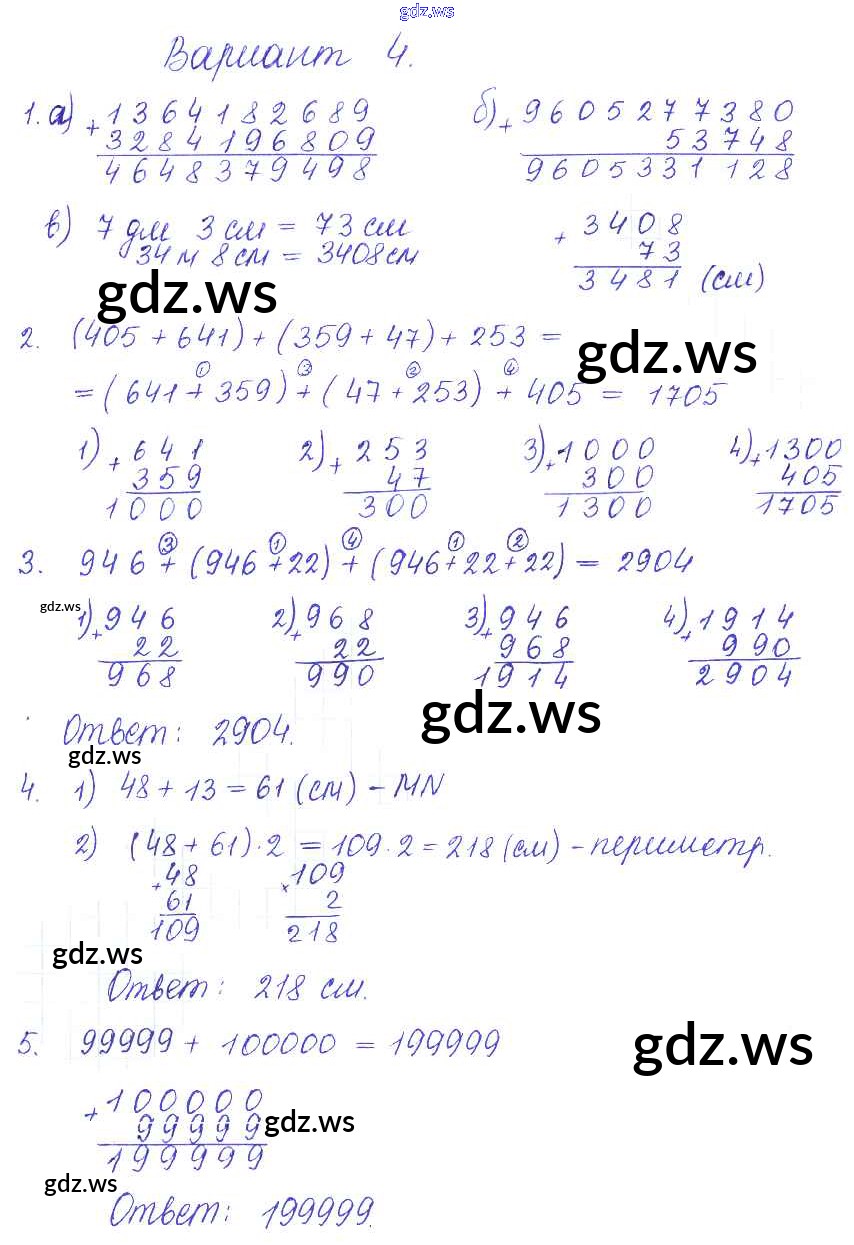 gdz.ws
Вариант 4.
1. а) + 1364182689
3284196809
4648379498
б) + 9605277380
53748
9605331128
в) 7 дм 3 см = 73 см
34 м 8 см = 3408 см
+ 3408
73
3481 (см)
gdz.ws
2. (405 + 641) + (359 + 47) + 253 =
gdz.ws
① ③ ② ④
= (641 + 359) + (47 + 253) + 405 = 1705
1) + 641
359
1000
2) + 253
47
300
3) + 1000
300
1300
4) + 1300
405
1705
③ ① ④ ① ②
3. 946 + (946 + 22) + (946 + 22 + 22) = 2904
gdz.ws
1) + 946
22
968
2) + 968
22
990
3) + 946
968
1914
4) + 1914
990
2904
gdz.ws
Ответ: 2904.
gdz.ws
4. 1) 48 + 13 = 61 (см) - MN
2) (48 + 61) · 2 = 109 · 2 = 218 (см) - периметр.
+ 48
61
109
× 109
2
218
gdz.ws
Ответ: 218 см.
5. 99999 + 100000 = 199999
gdz.ws
+ 100000
99999
199999
gdz.ws
gdz.ws
Ответ: 199999.